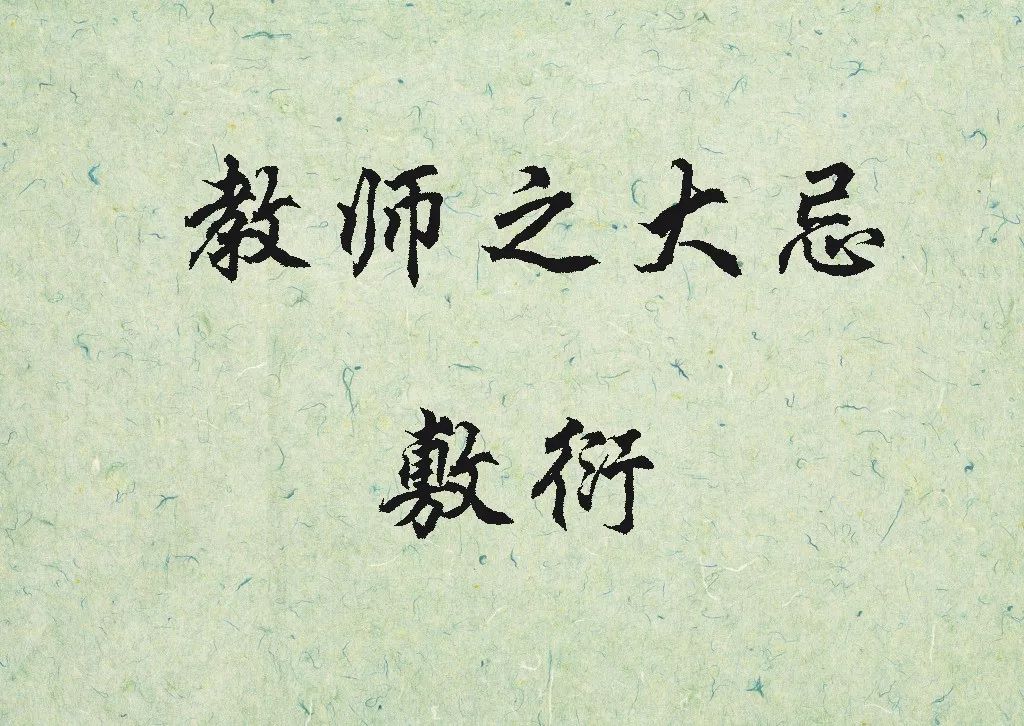 教师之大忌
敷衍